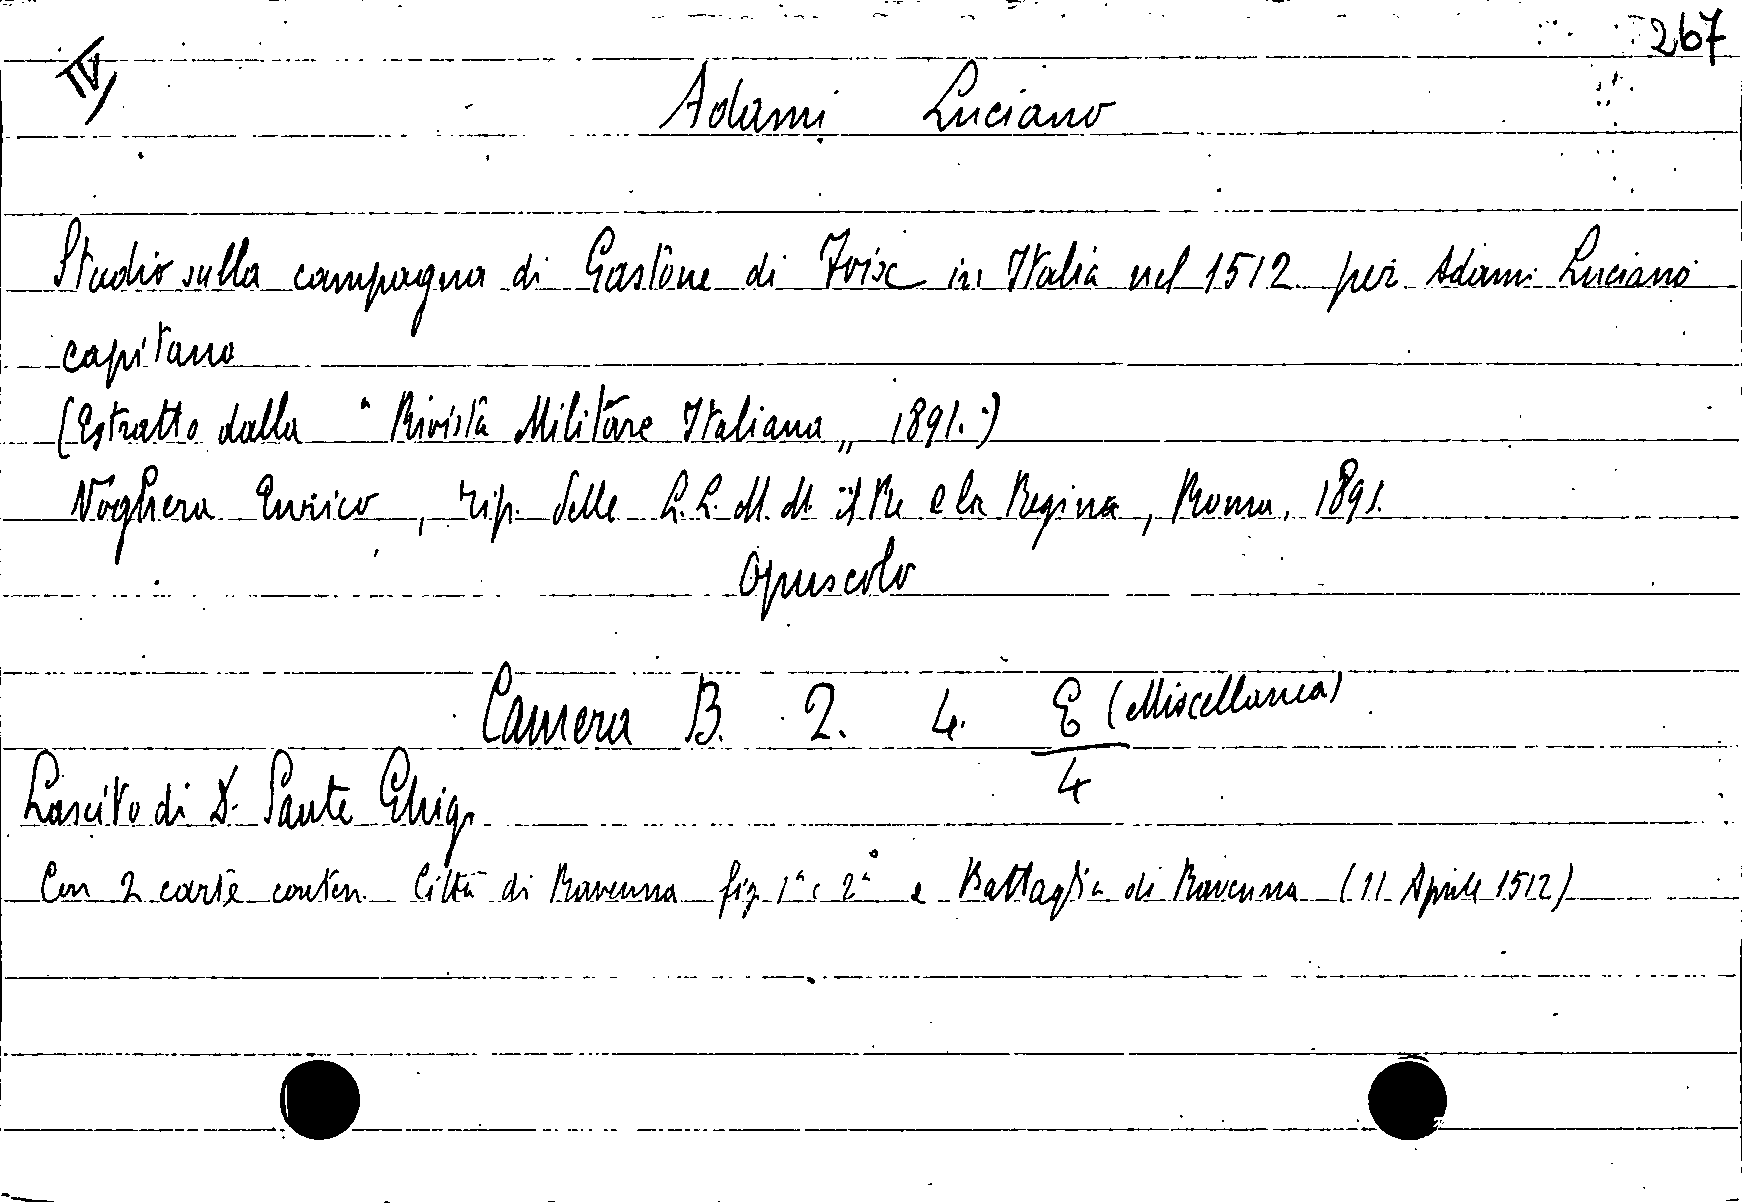 267
IV
Adami Luciano
Studio sulla campagna di Gastone di Foix in Italia nel 1512 per Adami Luciano
capitano
(Estratto dalla "Rivista Militare Italiana„ 1891.)
Voghera Enrico, tip. delle L.L. M.M. il Re e la Regina, Roma, 1891.
Opuscolo
Camera B. 2. 4. E (Miscellanea)
4
Lascito di D. Sante Ghig.
Con 2 carte conten. Città di Ravenna fig. 1ª e 2ª e Battaglia di Ravenna (11 Aprile 1512)